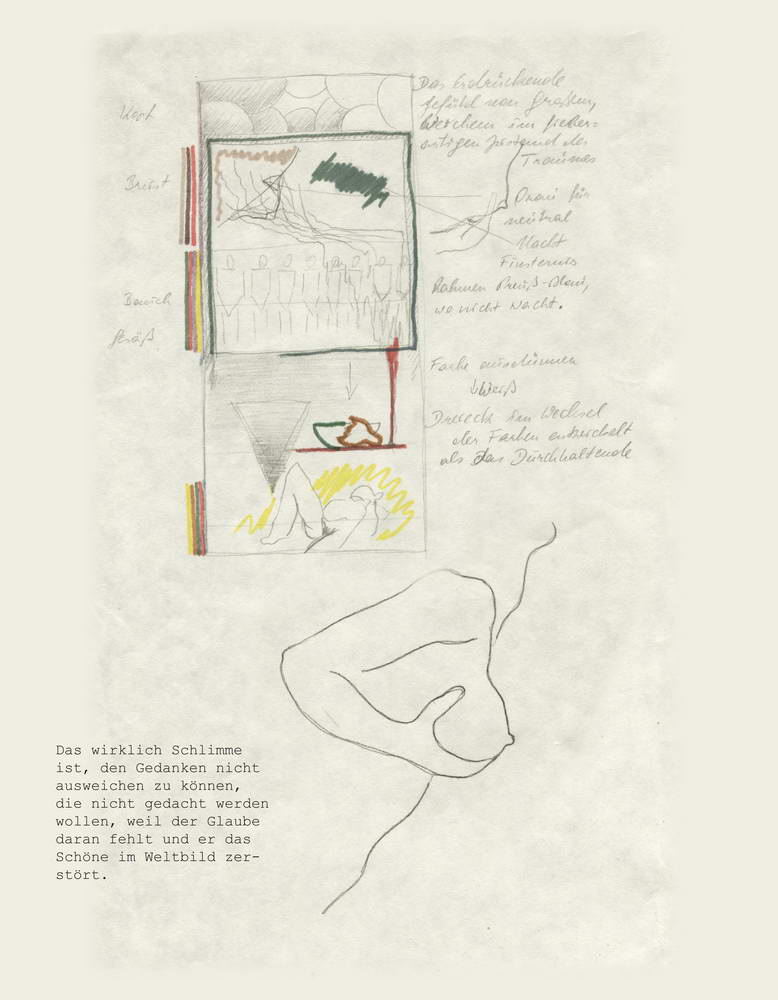 Kopf
Das Erdrückende
Gefühl von Großem,
Weichem im fieber=
artigen Zustand des
Traumes
Brust
für
neutral
Nacht
Finsternis
Rahmen Preuß-Blau,
wo nicht Nacht.
Bauch
Gesäß
Farbe ausdünnen
↓ Weiß
Dreieck im Wechsel
der Farben entwickelt
als das Durchhaltende
Das wirklich Schlimme
ist, den Gedanken nicht
ausweichen zu können,
die nicht gedacht werden
wollen, weil der Glaube
daran fehlt und er das
Schöne im Weltbild zer-
stört.